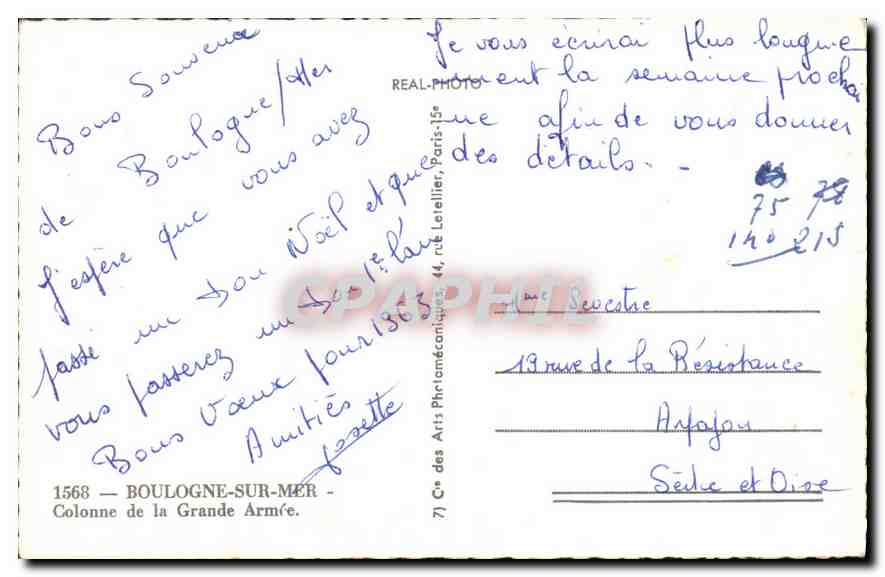 Bons Souvenir
de Boulogne/Mer
J'espère que vous avez
passé un bon Noël et que
vous passerez un bon 1er l'an
Bons Vœux pour 1963
Amitiés
Josette
Je vous écrirai plus longue
ment la semaine prochai
ne afin de vous donner
des détails. -
75 78
140 215
Mme Sevestre
19 rue de la Résistance
Arpajon
Seine et Oise
REAL-PHOTO
7) Cie des Arts Photomécaniques, 44, rue Letellier, Paris-15e
1568 — BOULOGNE-SUR-MER -
Colonne de la Grande Armée.
CPAPHIL